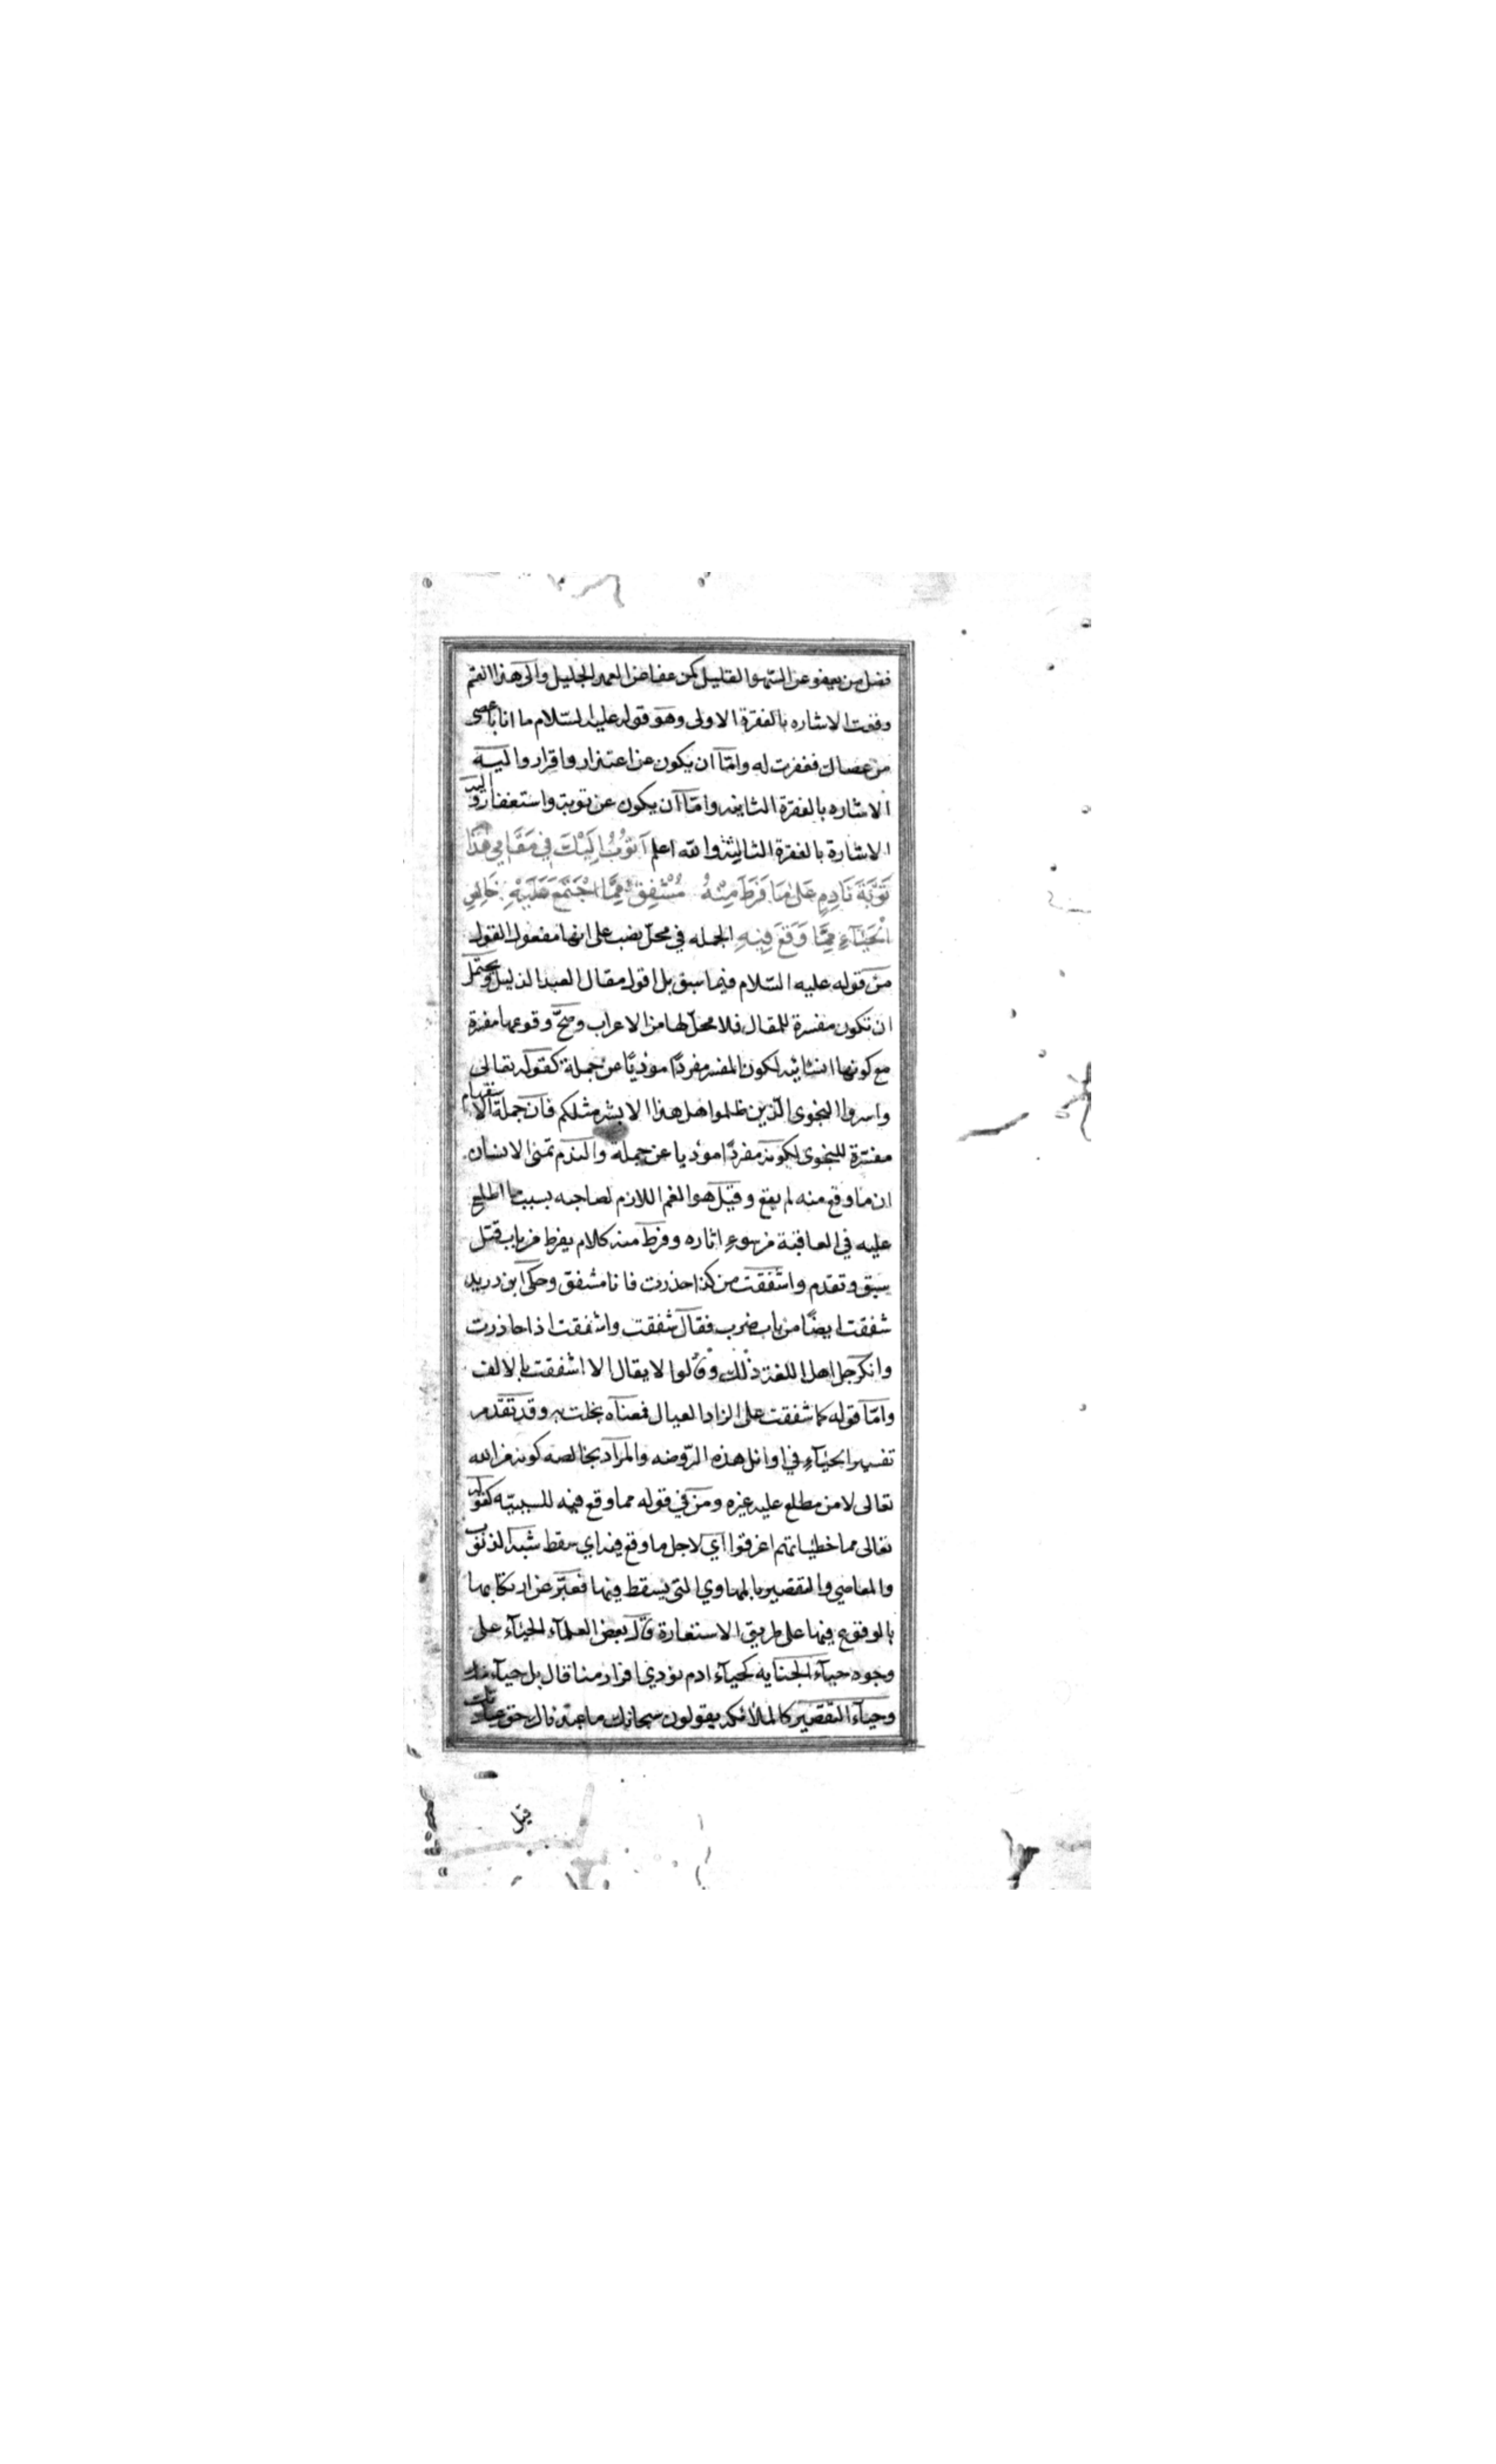 فضل من يعفو عن السّهو القليل كمن عفا عن العمد الجليل والى هذا القسم
وقعت الاشاره بالفقرة الاولى وهو قوله عليه السّلام ما انا باعصى
من عصاك فغفرت له وامّا ان يكون عن اعتذار واقرار واليه
الاشاره بالفقرة الثانيه وامّا ان يكون عن توبة واستغفار واليه
الاشارة بالفقرة الثالثة والله اعلم اَتُوبُ اِلَيْكَ فِي مَقَامِي هٰذَا
تَوْبَةَ نَادِمٍ عَلىٰ مَا فَرَطَ مِنْهُ مُشْفِقٍ مِمَّا اجْتَمَعَ عَلَيْهِ خَالِصِ
الْحَيَآءِ مِمَّا وَقَعَ فِيهِ الجمله في محلّ نصب على انها مفعول القول
من قوله عليه السّلام فيما سبق بل اقول مقال العبد الذليل ويحتمل
ان تكون مفسرة للمقال فلا محلّ لها من الاعراب وصحّ وقوعها مفسرة
مع كونها انشائيه لكون المفسر مفردًا مؤديًا عن جملة كقوله تعالى
واسروا النجوى الّذين ظلموا هل هذا الا بشر مثلكم فان جملة الاستفهام
مفسّرة للنجوى لكونه مفردًا مؤديا عن جملة والندم تمنى الانسان
ان ما وقع منه لم يقع وقيل هو الغم اللازم لصاحبه بسبب ما اطلع
عليه في العاقبة من سوء اثاره وفرط منه كلام يفرط من باب قتل
سبق وتقدم واشفقت من كذا حذرت فانا مشفق وحكى ابن دريد
شفقت ايضًا من باب ضرب فقال شفقت واشفقت اذا حاذرت
وانكر جل اهل اللغة ذلك وقالوا لا يقال الا اشفقت بالالف
وامّا قوله كما شفقت على الزاد العيال فمعناه بخلت به وقد تقدم
تفسير الحيآء في اوائل هذه الرّوضه والمراد بخالصه كونه من الله
تعالى لا من مطلع عليه غيره ومن في قوله مما وقع فيه للسببيّه كقوله
تعالى مما خطيئاتهم اغرقوا اي لاجل ما وقع فيه اي سقط شبه الذنوب
والمعاصي والتقصير بالمهاوي التى يسقط فيها فعبّر عن ارتكابها
بالوقوع فيها على طريق الاستعارة قال بعض العلمآء الحيآء على
وجوه حيآء الجنايه كحيآء ادم نودي افرارا منا قال بل حيآء منك
وحيآء التقصير كالملائكه يقولون سبحانك ما عبدناك حق عبادتك
قيل